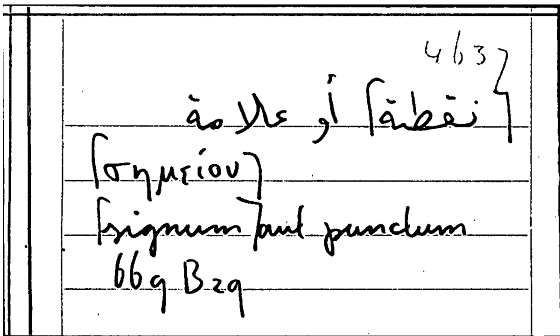 463
⌈نقطة⌉ أو علامة
⌈σημείου⌉
⌈signum⌉ aut punctum
66q B29